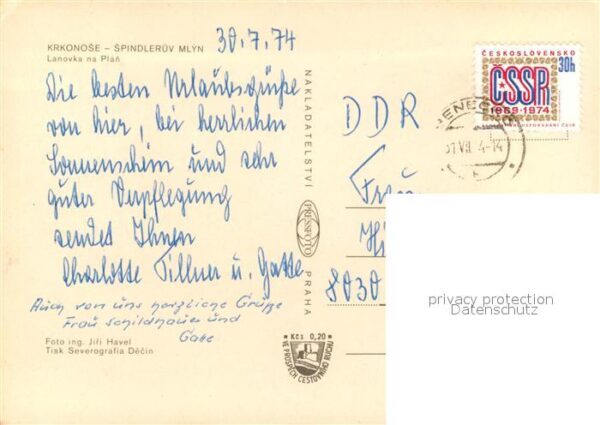 KRKONOŠE – ŠPINDLERŮV MLÝN
Lanovka na Pláň
30.7.74
Die besten Urlaubsgrüße
von hier, bei herrlichen
Sonnenschein und sehr
guter Verpflegung
sendet Ihnen
Charlotte Tillner u. Gatte
Auch von uns herzliche Grüße
Frau Schildhauer und
Gatte
Foto ing. Jiří Havel
Tisk Severografia Děčín
NAKLADATELSTVÍ
PRESSFOTO
PRAHA
Kčs 0,20
VE PROSPĚCH CESTOVNÍHO RUCHU
ČESKOSLOVENSKO
30h
ČSSR
1969-1974
DDR
Frau
Hi
8030
privacy protection
Datenschutz